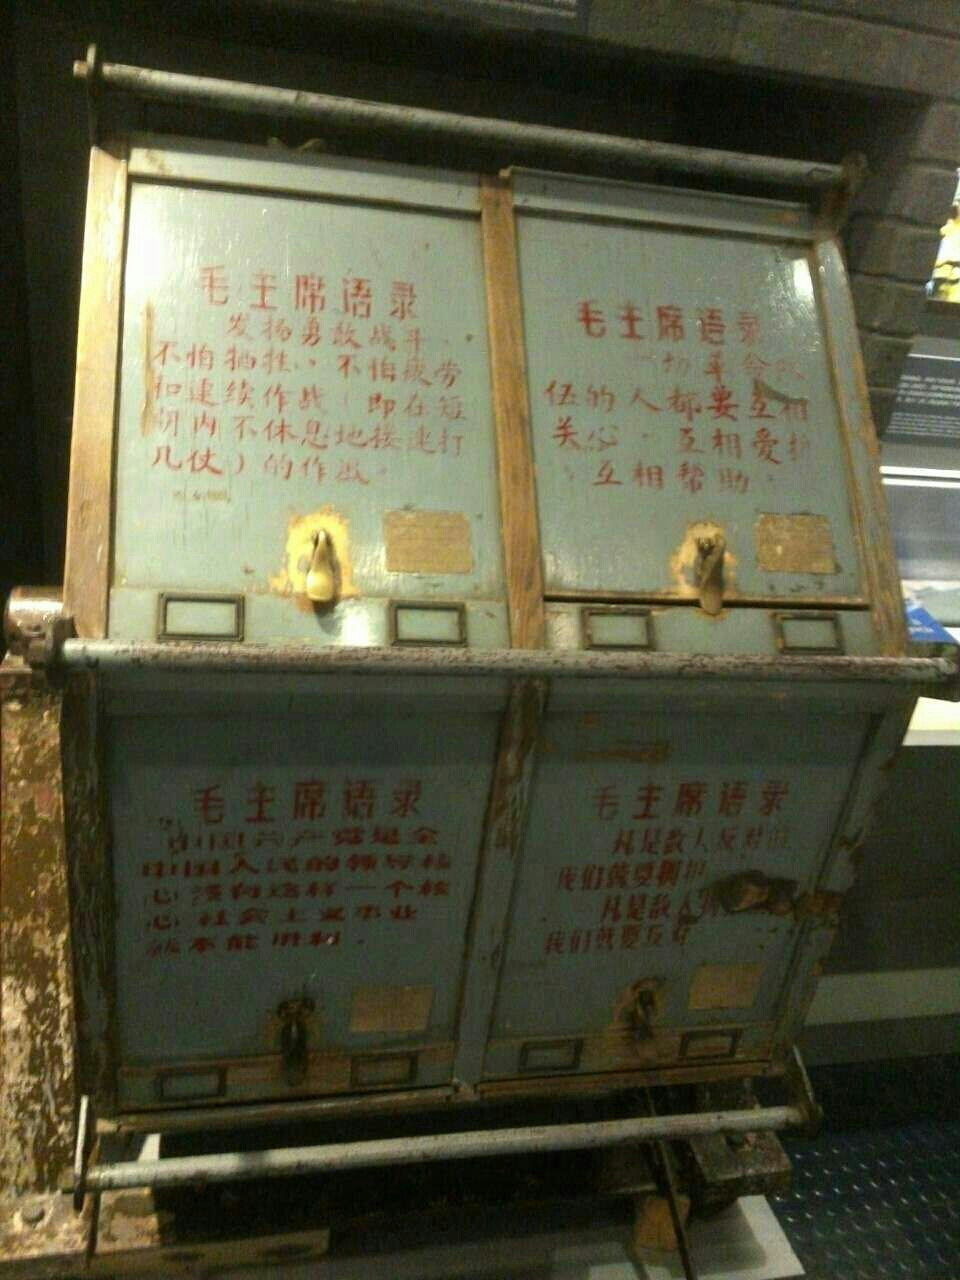 毛主席语录
发扬勇敢战斗、
不怕牺牲、不怕疲劳
和连续作战（即在短
期内不休息地接连打
几仗）的作风。
毛主席语录
一切革命队
伍的人都要互相
关心，互相爱护
互相帮助。
毛主席语录
中国共产党是全
中国人民的领导核
心没有这样一个核
心社会主义事业
就不能胜利.
毛主席语录
凡是敌人反对的
我们就要拥护
凡是敌人
我们就要反对